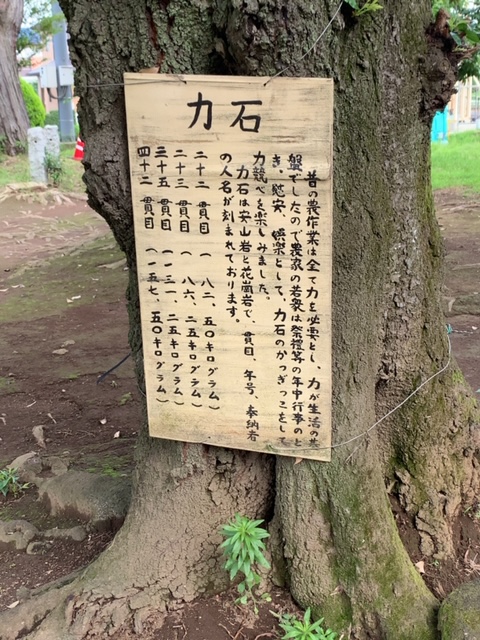 力石
昔の農作業は全て力を必要とし、力が生活の基
盤でしたので農家の若衆は祭禮等の年中行事のと
き、慰安、娯楽として、力石のかつぎっこをして
力競べを楽しみました。
力石は安山岩と花崗岩で、貫目、年号、奉納者
の人名が刻まれております。
二十二貫目（八二、五〇キログラム）
二十三貫目（八六、二五キログラム）
三十五貫目（一三一、二五キログラム）
四十二貫目（一五七、五〇キログラム）